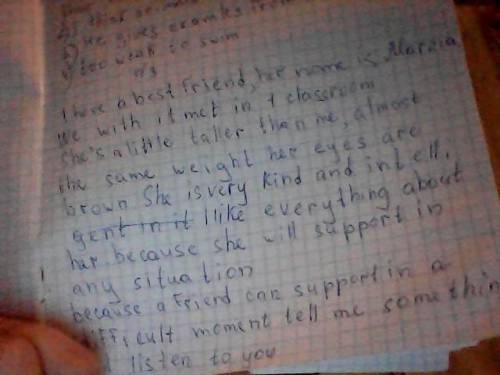 I think
He gives examples from
too weak to swim
n3
I have a best friend, her name is
We with it met in 1 classroom
She's a little taller than me, almost
the same weight her eyes are
brown She is very kind and intelli,
gent in it I like everything about
her because she will support in
any situation
because a friend can support in a
difficult moment tell me somethin
listen to you